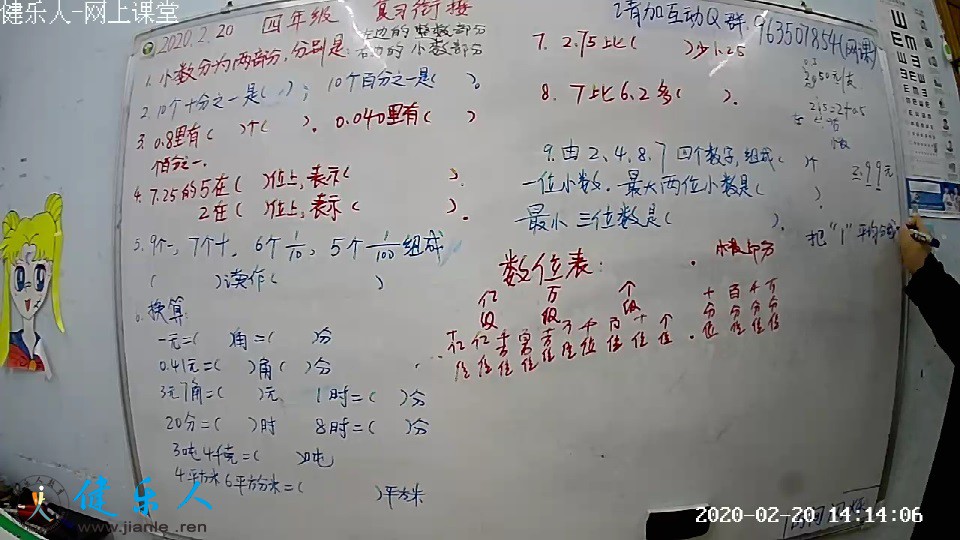 健乐人-网上课堂
2020.2.20 四年级 复习衔接
请加互动Q群
963507854(网课)
1.小数分为两部分,分别是:左边的整数部分
右边的小数部分
2.10个十分之一是( ); 10个百分之一是( )。
3.0.8里有( )个( )。 0.040里有( )
百分之一。
4.7.25的5在( )位上,表示( )。
2在( )位上,表示( )。
5.9个一,7个十,6个1/10,5个1/100组成
( )读作( )
换算:
一元=( )角=( )分
0.41元=( )角( )分
3元7角=( )元 1时=( )分
20分=( )时 8时=( )分
3吨4千克=( )吨
4平方米6平方分米=( )平方米
7. 2.75比( )少1.25
8. 7比6.2多( )。
9.由2、4、8、7四个数字,组成( )个
一位小数。最大两位小数是( )。
最小三位数是( )。
2.99元
把“1”平均分成
数位表:
小数部分
亿级 万级 个级
十分位 百分位 千分位 万分位
健乐人
www.jianle.ren
2020-02-20 14:14:06